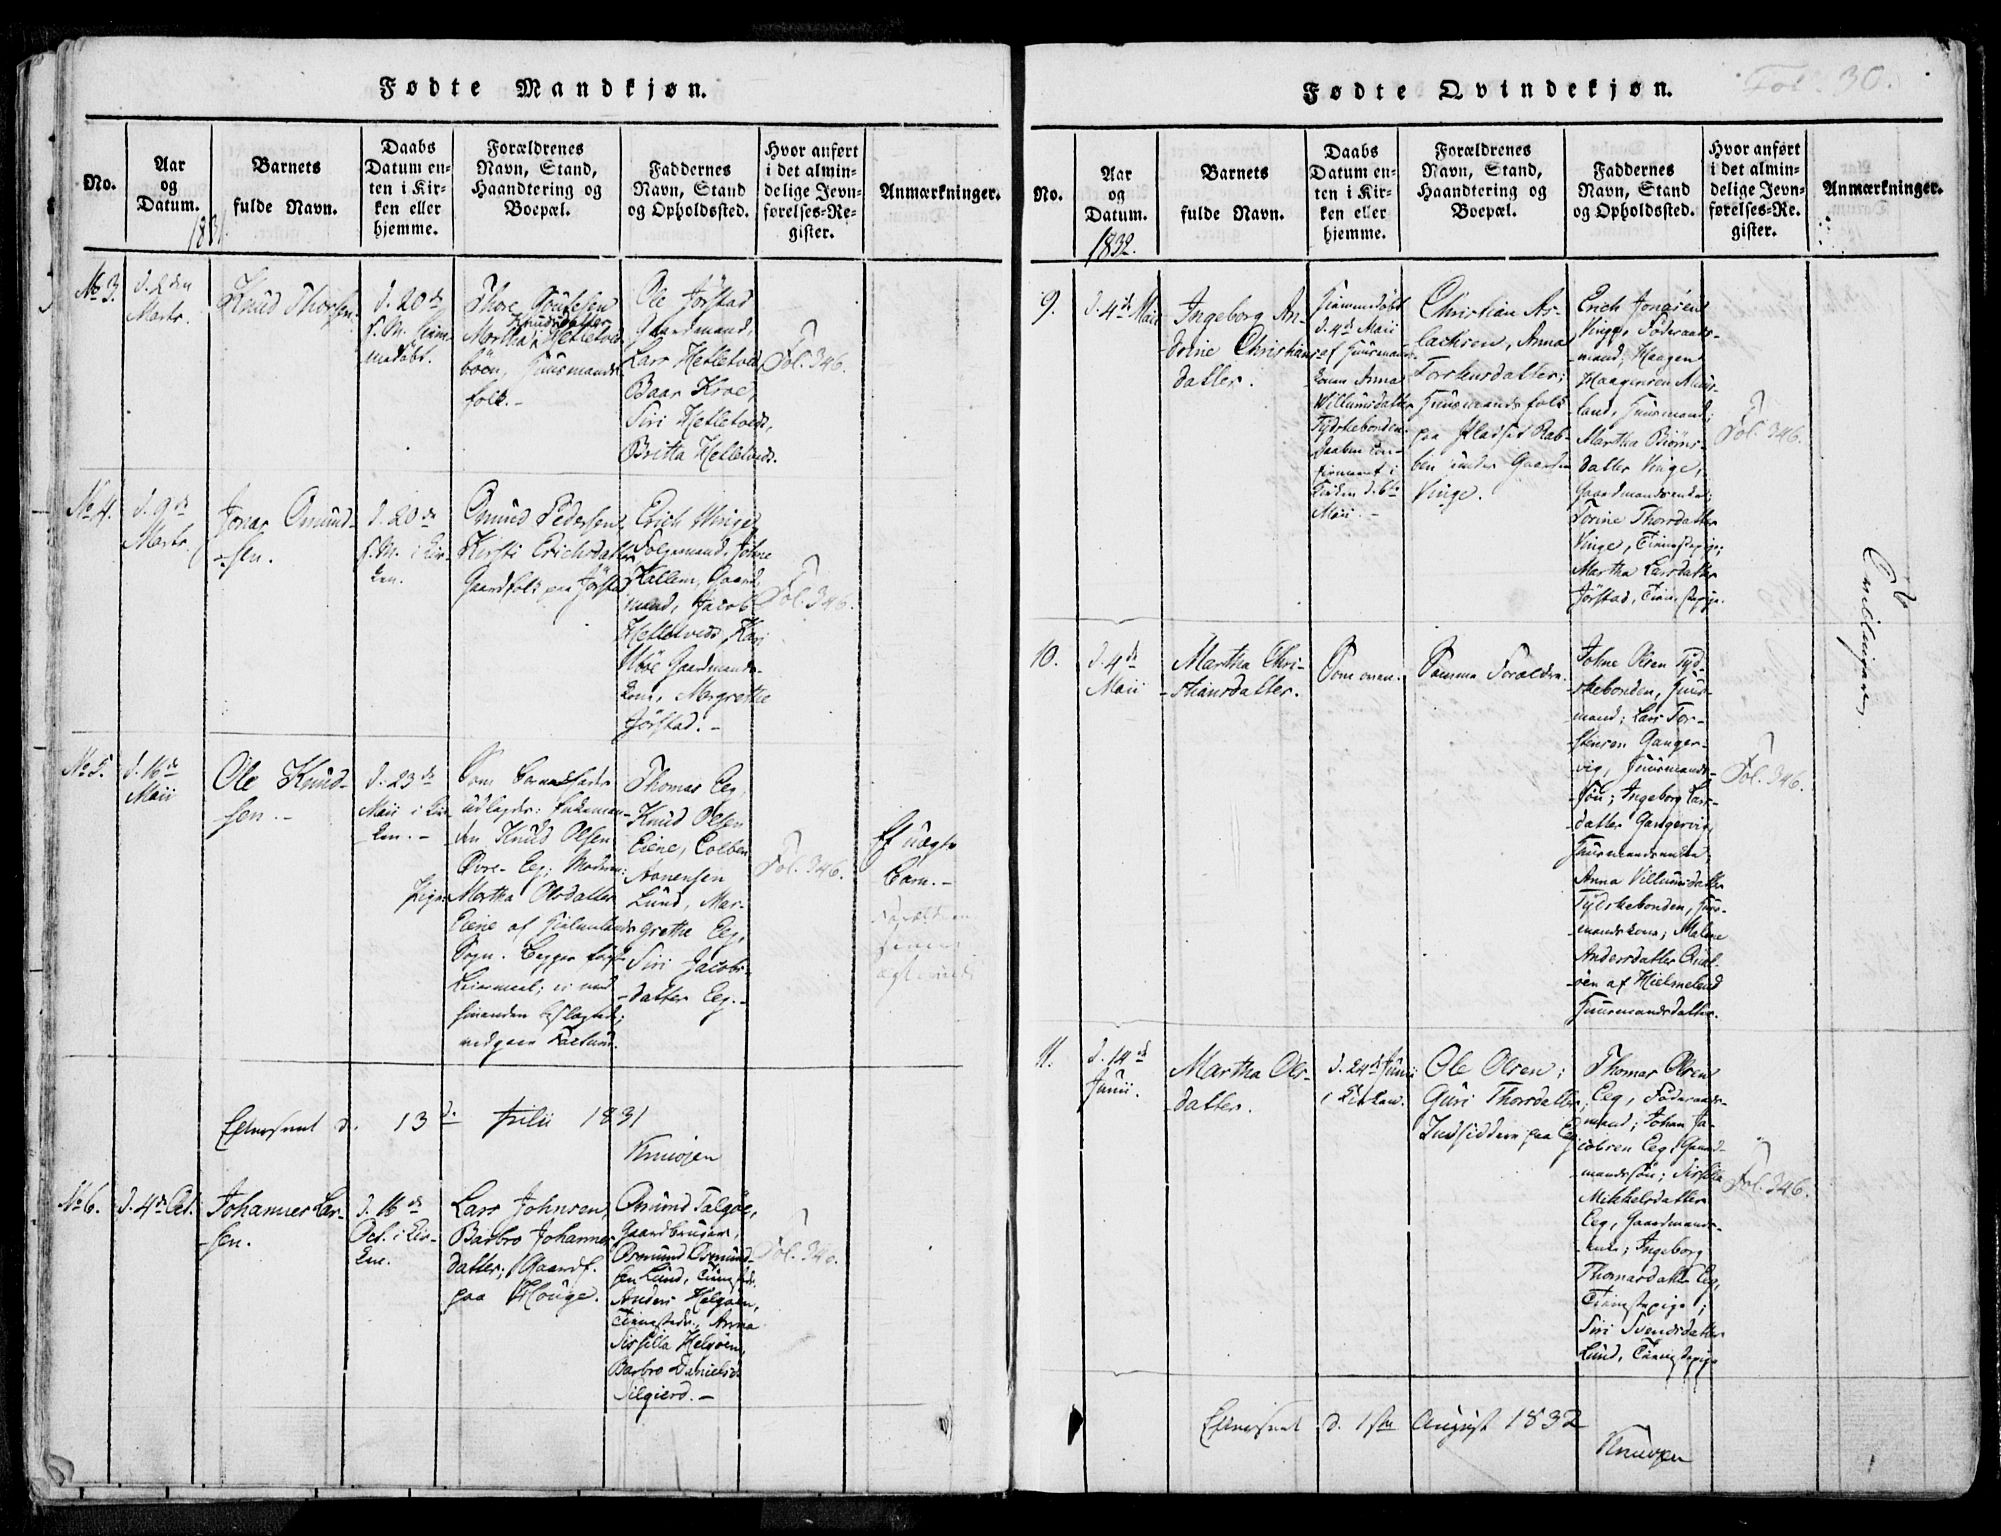 Fødte Mandkjøn.
No.
Aar
og
Datum.
1831.
Barnets
fulde Navn.
Daabs
Datum en-
ten i Kir-
ken eller
hjemme.
Forældrenes
Navn, Stand,
Haandtering og
Boepæl.
Faddernes
Navn, Stand
og Opholdssted.
Hvor anført
i det almin-
delige Jevn-
førelses-Re-
gister.
Anmærkninger.
No 3.
d. 2den
Marts.
Knud Thorsen
d. 20de
s. M. Hjem-
medøbt.
Thore
Knudsdatter
Martha Hetletved
bøen, Huusmands
folk.-
Ole Jørstad
Gaardmand,
Lars Hetletved
Baar Kroe,
Siri Hetletvedt,
Britta Hetletvedt.
Fol. 346.
No 4.
d. 9de
Marts.
Jonas Omund-
-sen.
d. 20de
s. M. i Kir-
ken.
Omund Pedersen,
Kersti Erichsdatter
Gaardfolk paa Jørstad
Erich Vinge
Folgemand, Johne
Kallem, Gaard
mand, Jacob
Hetletvedt, Kari
Gaardmands-
kone, Margrethe
Jørstad.-
Fol. 346.
No 5.
d. 16de
Maii
Ole Knud-
sen.-
d. 23de
Maii i Kir-
ken.-
Som Barnefader
udlagdes:
Knud Olsen
Øvre-Eeg; Moderen:
Pigen Martha Olsdatter
Eiene af Hielmelands
Sogn. Begges første
Leiermaal; ei med
hinanden beslægtede;
vedgaaer Factum.
Thomas Eeg,
Knud Olsen
Eiene, Colben
Aanensen
Lund, Mar-
grethe Eeg,
Siri Jacobs-
-datter Eeg.-
Fol. 346.
Et uægte
Barn.-
Forældrene
senere
ægteviede
Efterseet d. 13de Julii 1831
Knudsen
No 6.
d. 4de Oct.
Johannes Lar-
-sen.
d. 16de
Oct. i Kir-
ken.
Lars Johnsen,
Barbro Johannes
datter; Gaardf.
paa Houge.
Omund Talgøe,
Gaardbruger,
Osmund Osmund-
sen Lund, Tienestedr.
Anders Helgøen,
Tienestedr., Anna
Sissilla Helgøen,
Barbro Danielsd.
Silgierd.-
Fol. 346.
Fødte Qvindekjøn.
Fol. 30.
No.
Aar
og
Datum.
1832.
Barnets
fulde Navn.
Daabs
Datum en-
ten i Kir-
ken eller
hjemme.
Forældrenes
Navn, Stand,
Haandtering og
Boepæl.
Faddernes
Navn, Stand
og Opholdssted.
Hvor anført
i det almin-
delige Jevn-
førelses-Re-
gister.
Anmærkninger.
9.
d. 4de Maii
Ingeborg An-
drine Christians-
datter.
Hjemmedøbt
d. 4de Maii
af Huusmands-
konen Anna
Villumsdatter
Tydskebonden.
Daaben con-
firmeret i
Kirken d. 6te
Maii.-
Christian As-
lachsen, Anna
Torstensdatter;
Huusmandsfolk
paa Pladset Rab-
ben under Gaarden
Vinge.
Erich Jonasen
Vinge, Føderaads-
mand; Haagen
Haagensen
land, Huusmand;
Martha Biørns-
datter Vinge,
Gaardmandsenke;
Torine Thorsdatter
Vinge, Tienestepige;
Martha Larsdatter
Jørstad, Tienestepige.
Fol. 346.
Tvillinger.
10.
d. 4de
Maii
Martha Chri-
-stiansdatter.
Som oven.
Samme Forældre.
Johne Olsen Tyd-
skebonden, Huus-
mand; Lars Tor-
stensen Ganger-
vig, Huusmands-
søn; Ingeborg Lars-
datter Gangervig
Huusmandsenke;
Anna Villumsdatter
Tydskebonden, Huus-
mandskone; Malene
Andersdatter
øen af Hielmeland
Huusmandsdatter.
Fol. 346.
11.
d. 14de
Junii.
Martha Ols-
datter.
d. 24de Junii
i Kirken.
Ole Olsen;
Guri Thorsdatter;
Indsiddere paa Eeg
Thomas Olsen
Eeg, Føderaads-
mand; Johan Ja-
cobsen Eeg, Gaard-
mandssøn; Sissilla
Mikkelsdatter
Eeg, Gaardmands-
kone; Ingeborg
Thomasdatter Eeg,
Tienestepige;
Siri Svendsdatter
Lund, Tienestepige
Fol. 346.
Efterseet d. 1ste August 1832
Knudsen